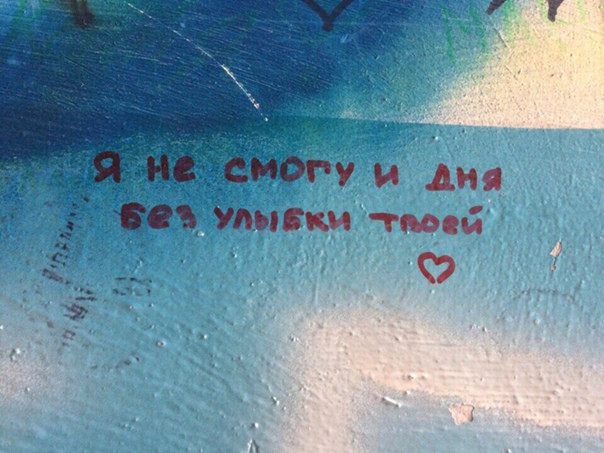 Я не смогу и дня
без улыбки твоей
♡